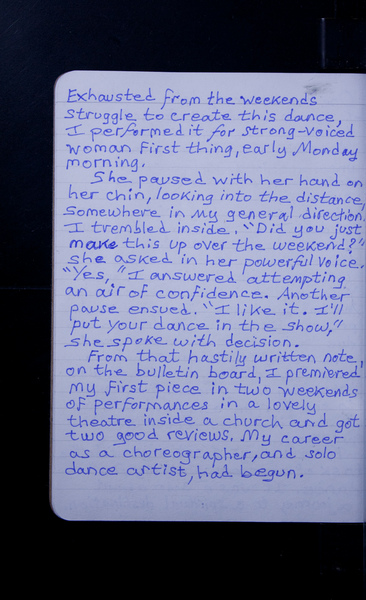 Exhausted from the weekends
struggle to create this dance,
I performed it for strong-voiced
woman first thing, early Monday
morning.
She paused with her hand on
her chin, looking into the distance,
somewhere in my general direction.
I trembled inside. "Did you just
make this up over the weekend?"
she asked in her powerful voice.
"Yes," I answered attempting
an air of confidence. Another
pause ensued. "I like it. I'll
put your dance in the show,"
she spoke with decision.
From that hastily written note,
on the bulletin board, I premiered
my first piece in two weekends
of performances in a lovely
theatre inside a church and got
two good reviews. My career
as a choreographer, and solo
dance artist, had begun.